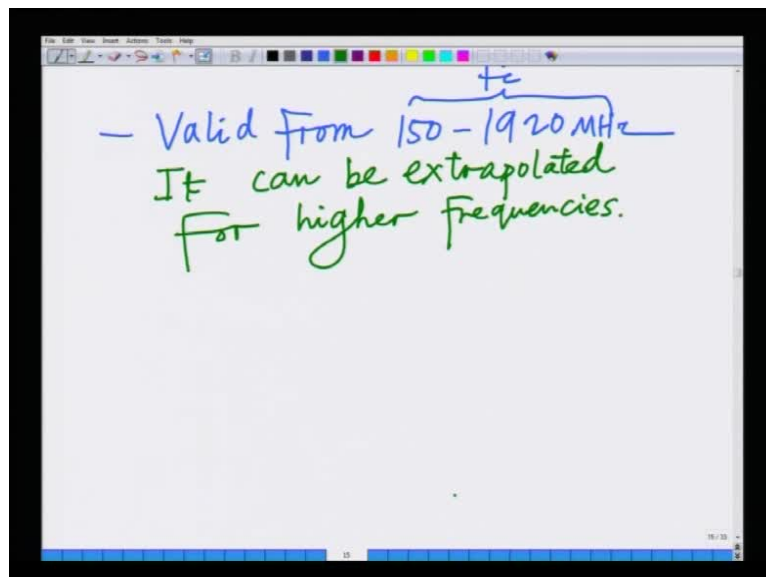 File Edit View Insert Actions Tools Help
fc
– Valid from 150 – 1920 MHz
It can be extrapolated
for higher frequencies.
15